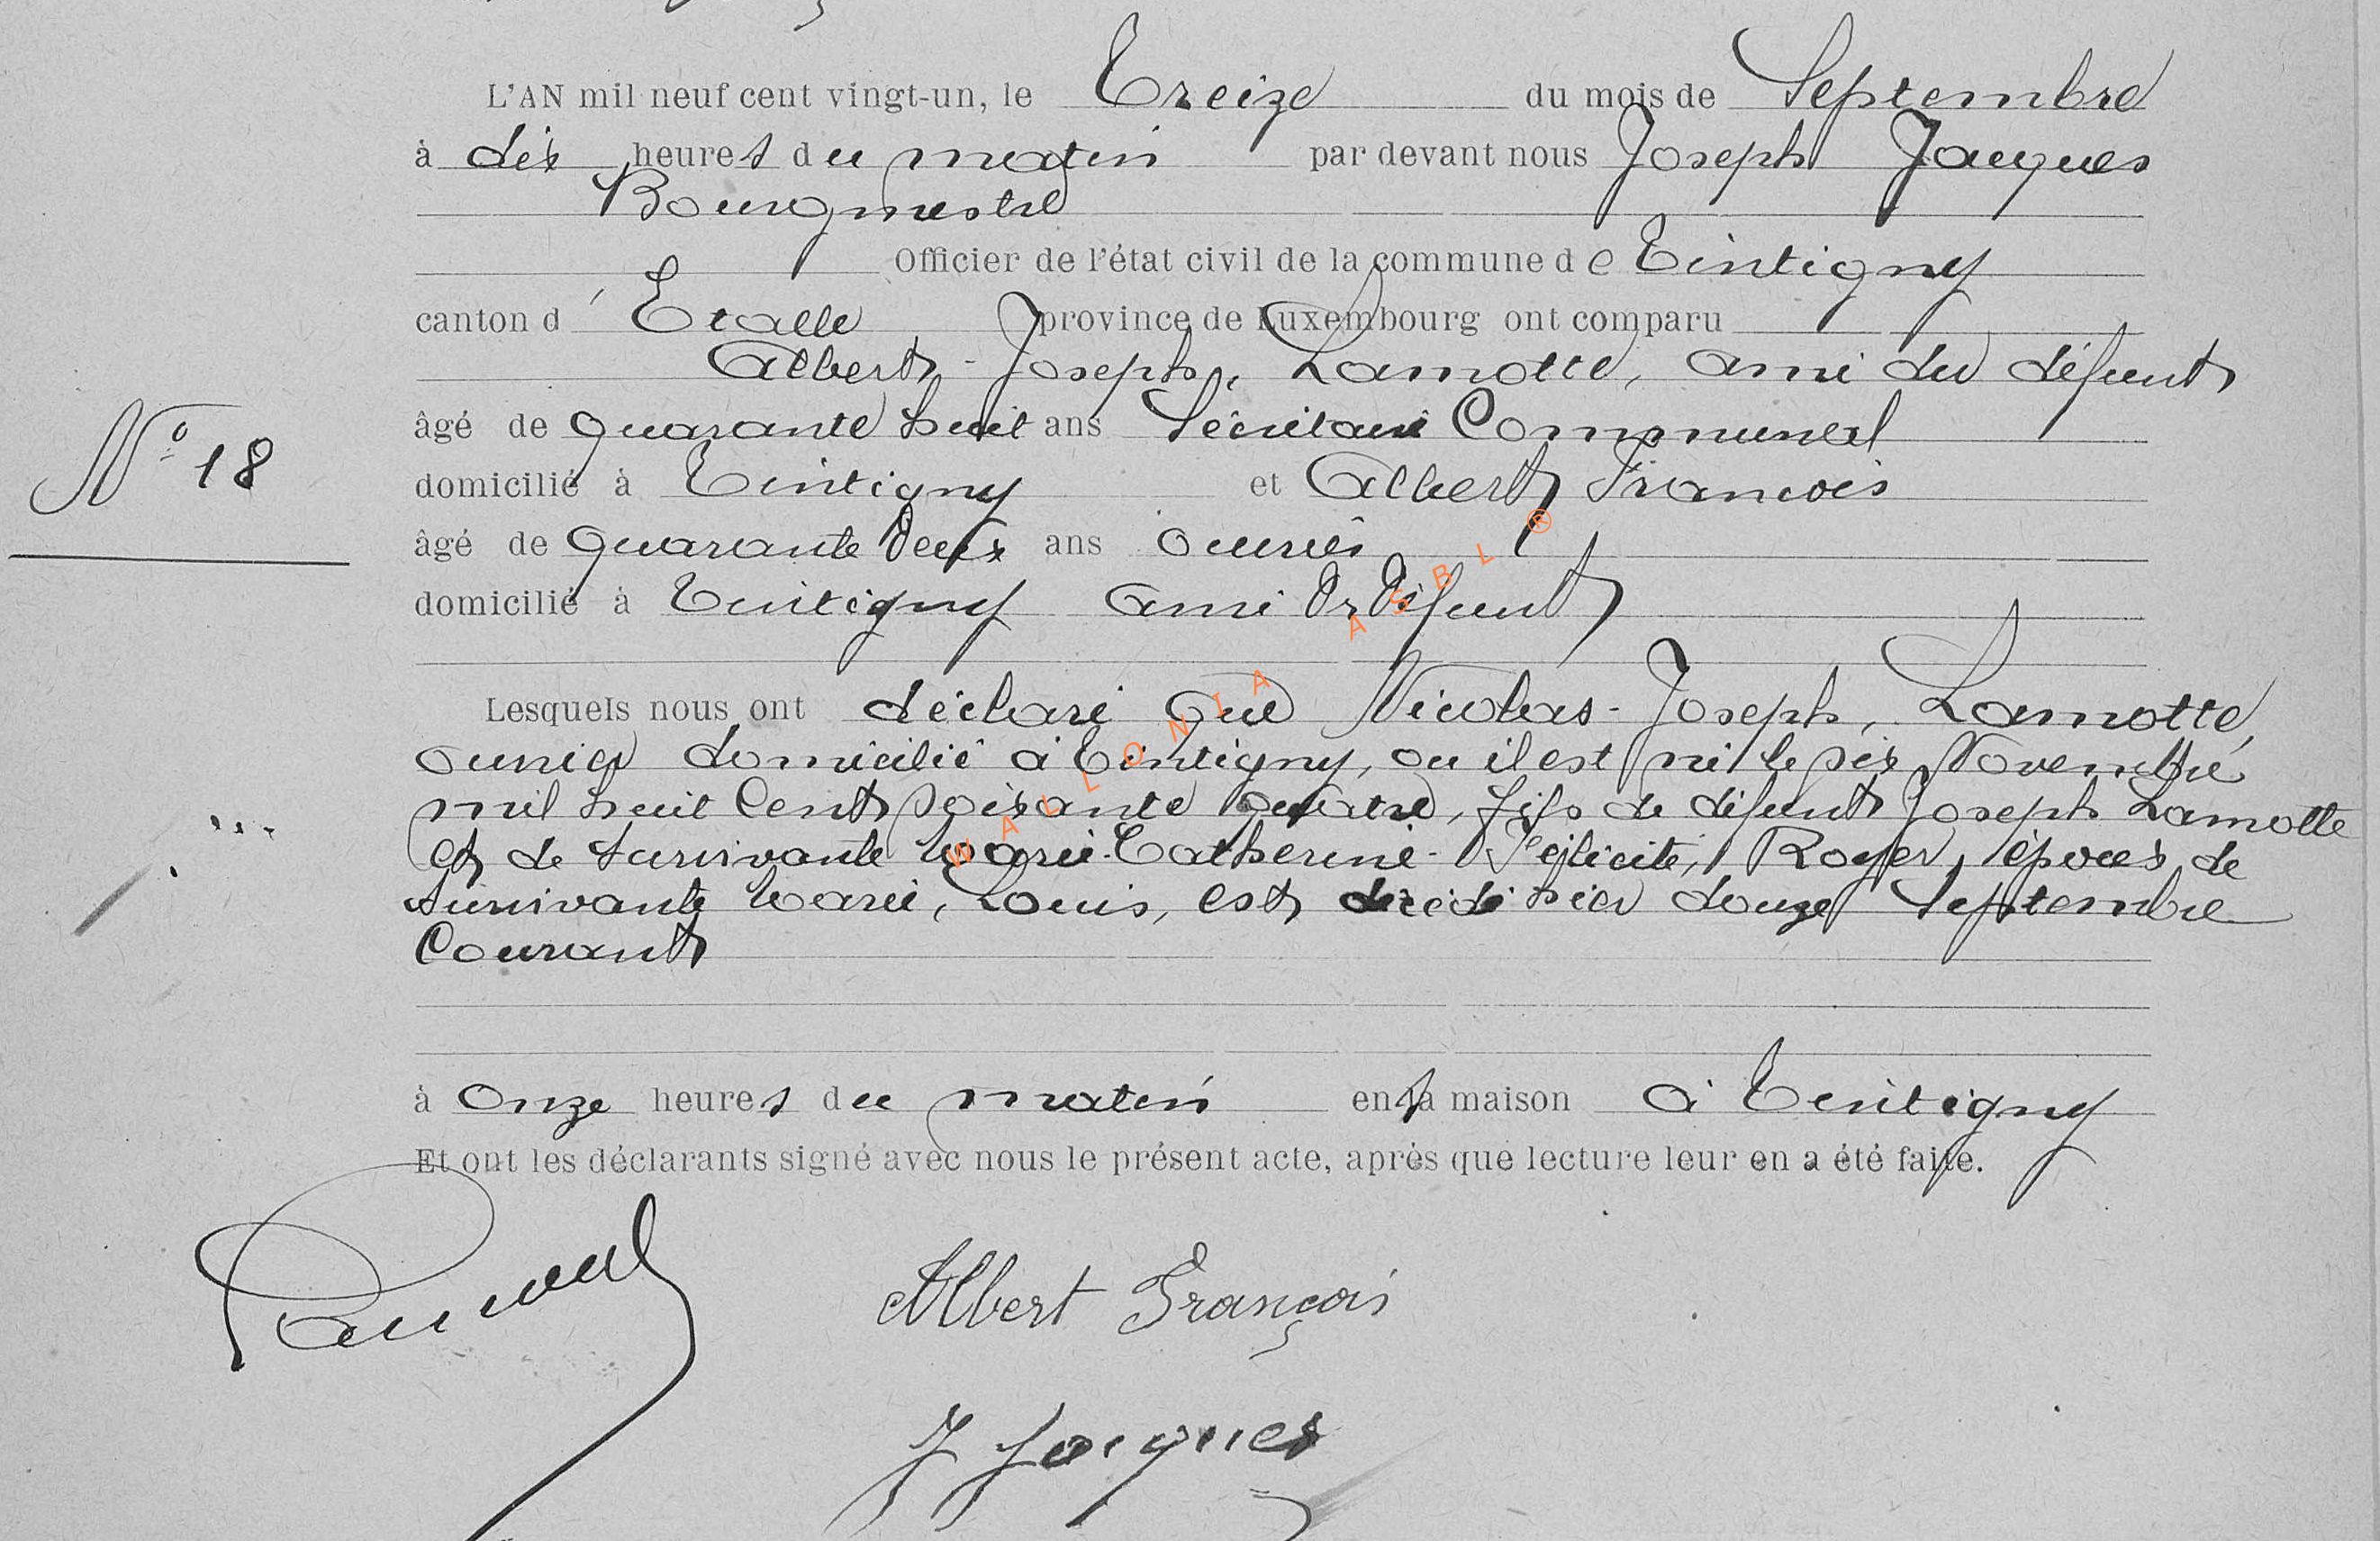 L'AN mil neuf cent vingt-un, le Treize du mois de Septembre
à dix heures du matin par devant nous Joseph Jacques
Bourgmestre
Officier de l'état civil de la commune de Tintigny
canton d'Etalle province de Luxembourg ont comparu
Albert-Joseph, Lamotte, ami du défunt
N° 18
âgé de quarante huit ans Secrétaire Communal
domicilié à Tintigny et Albert François
âgé de quarante deux ans ouvrier
domicilié à Tintigny ami du défunt
Lesquels nous ont déclaré que Nicolas-Joseph, Lamotte,
ouvrier domicilié à Tintigny, où il est né le six Novembre
mil huit cent soixante quatre, fils de défunt Joseph Lamotte
et de survivante Marie-Catherine-Félicité, Royer, époux de
survivante Marie, Louis, est décédé hier douze Septembre
Courant
à onze heures du matin en sa maison à Tintigny
Et ont les déclarants signé avec nous le présent acte, après que lecture leur en a été faite.
Albert François
J Jacques
WALLONIA ASBL ®